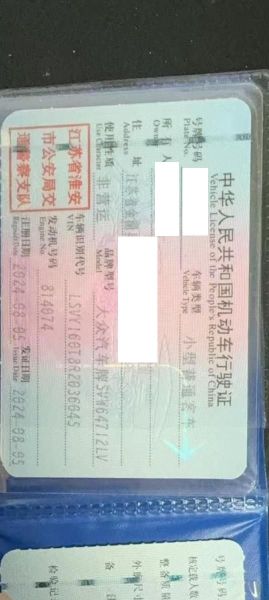 中华人民共和国机动车行驶证
Vehicle License of the People's Republic of China
号牌号码
Plate No.
车辆类型 小型普通客车
Vehicle Type
所有人
Owner
住址 江苏省金湖
Address
使用性质 非营运
Use Character
品牌型号 大众汽车牌SVW64712LV
Model
江苏省淮安
市公安局交
通警察支队
车辆识别代号
VIN
发动机号码 814074
Engine No.
注册日期 2024-08-05
发证日期 2024-08-05
Issue Date
号牌号码
核定载人数
整备质量
外廓尺寸
备
检验记